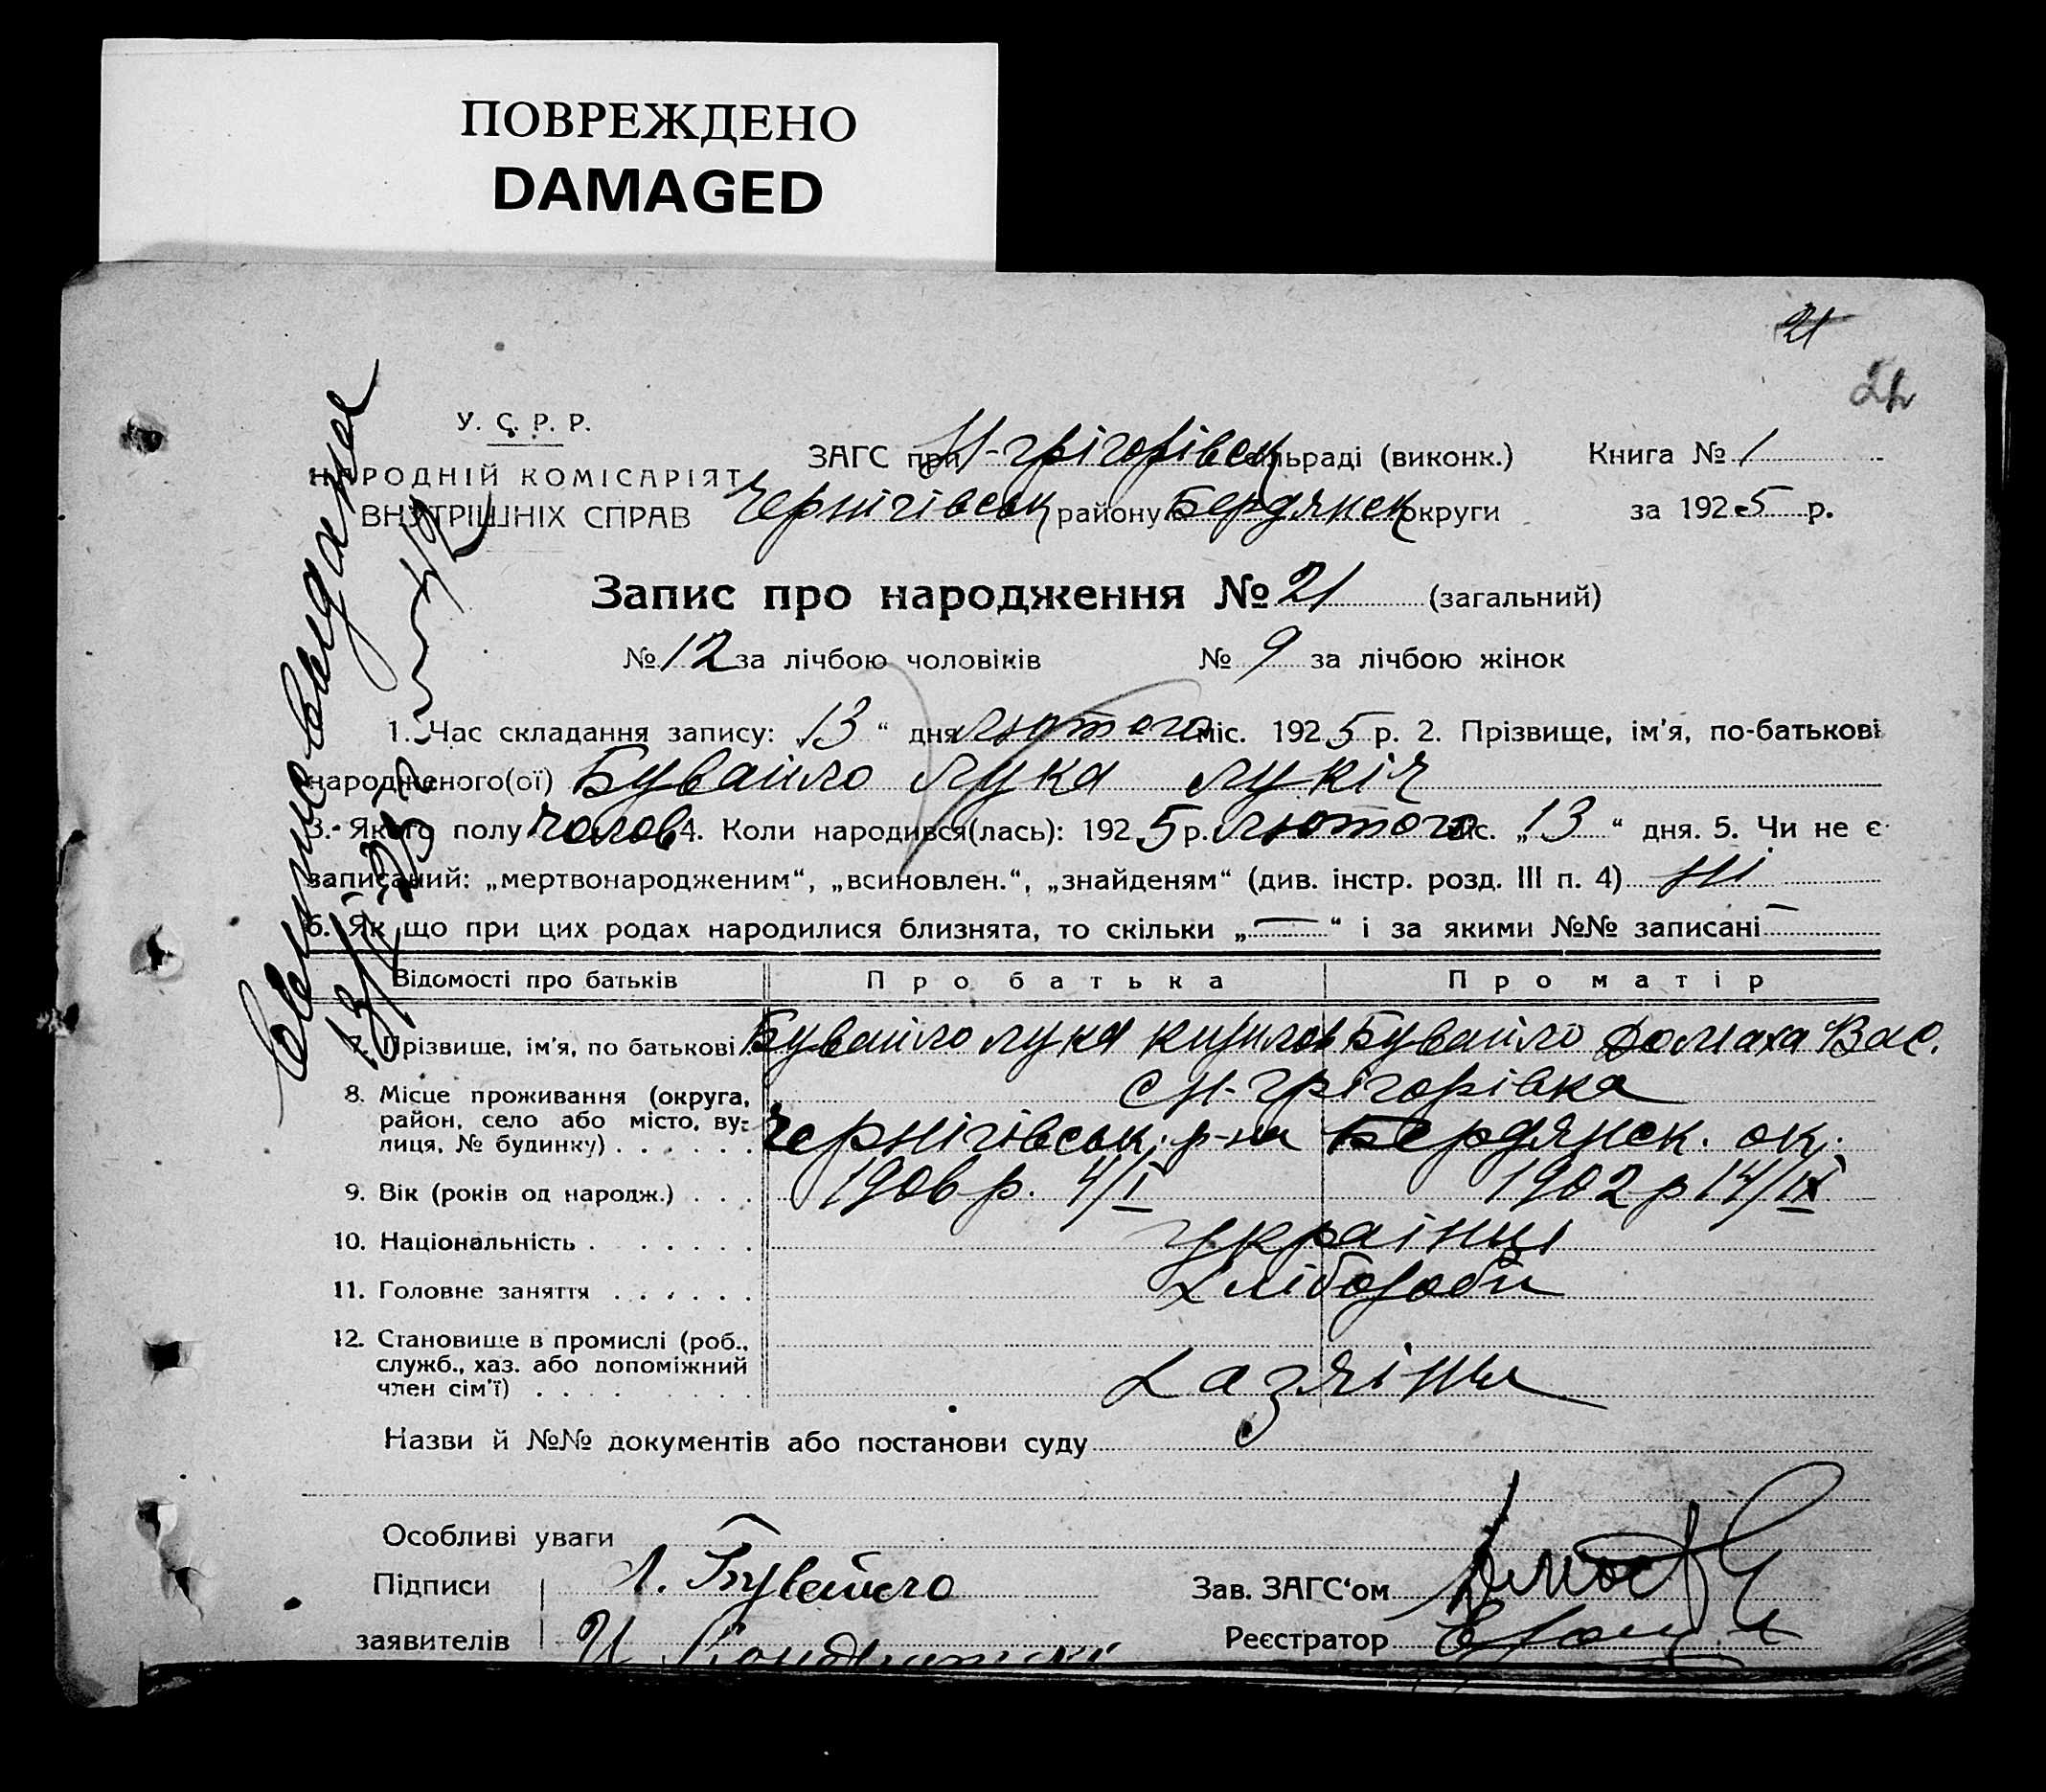 ПОВРЕЖДЕНО
DAMAGED
21
22
У. С. Р. Р.
НАРОДНІЙ КОМІСАРІЯТ
ВНУТРІШНІХ СПРАВ
ЗАГС при Н-Грігорівськ сільраді (виконк.)
Чернігівськ району Бердянськ округи
Книга № 1
за 1925 р.
Запис про народження № 21 (загальний)
№ 12 за лічбою чоловіків № 9 за лічбою жінок
1. Час складання запису: „13“ дня лютого міс. 1925 р. 2. Прізвище, ім'я, по-батькові
народженого(ої) Бувайло Лука Лукіч
3. Якого полу чолов 4. Коли народився(лась): 1925 р. лютого міс. „13“ дня. 5. Чи не є
записаний: „мертвонародженим“, „всиновлен.“, „знайденям“ (див. інстр. розд. III п. 4) ні
6. Як що при цих родах народилися близнята, то скільки „—“ і за якими №№ записані —
Відомості про батьків Про батька Про матір
7. Прізвище, ім'я, по батькові Бувайло Лука Кирилов Бувайло Домаха Вас.
8. Місце проживання (округа, район, село або місто, вулиця, № будинку) Н-Грігорівка
Чернігівськ. р-на Бердянськ. ок.
9. Вік (років од народж.) 1906 р. 4/I 1902 р 14/IX
10. Національність українці
11. Головне заняття хлібороби
12. Становище в промислі (роб., служб., хаз. або допоміжний член сім'ї) хазяіни
Назви й №№ документів або постанови суду
Особливі уваги
Підписи Л. Бувайло Зав. ЗАГС‘ом
заявителів И Реєстратор